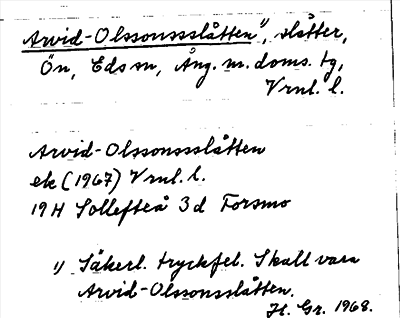 Arvid-Olssonsslåtten¹⁾, slåtter,
Ön, Eds sn, Ång. m. doms. tg,
Vrnl. l.
Arvid-Olssonsslåtten
ek (1967) Vrnl. l.
19 H Sollefteå 3 d Forsmo
1) Säkerl. tryckfel. Skall vara
Arvid-Olssonslåtten.
H. Gr. 1968.